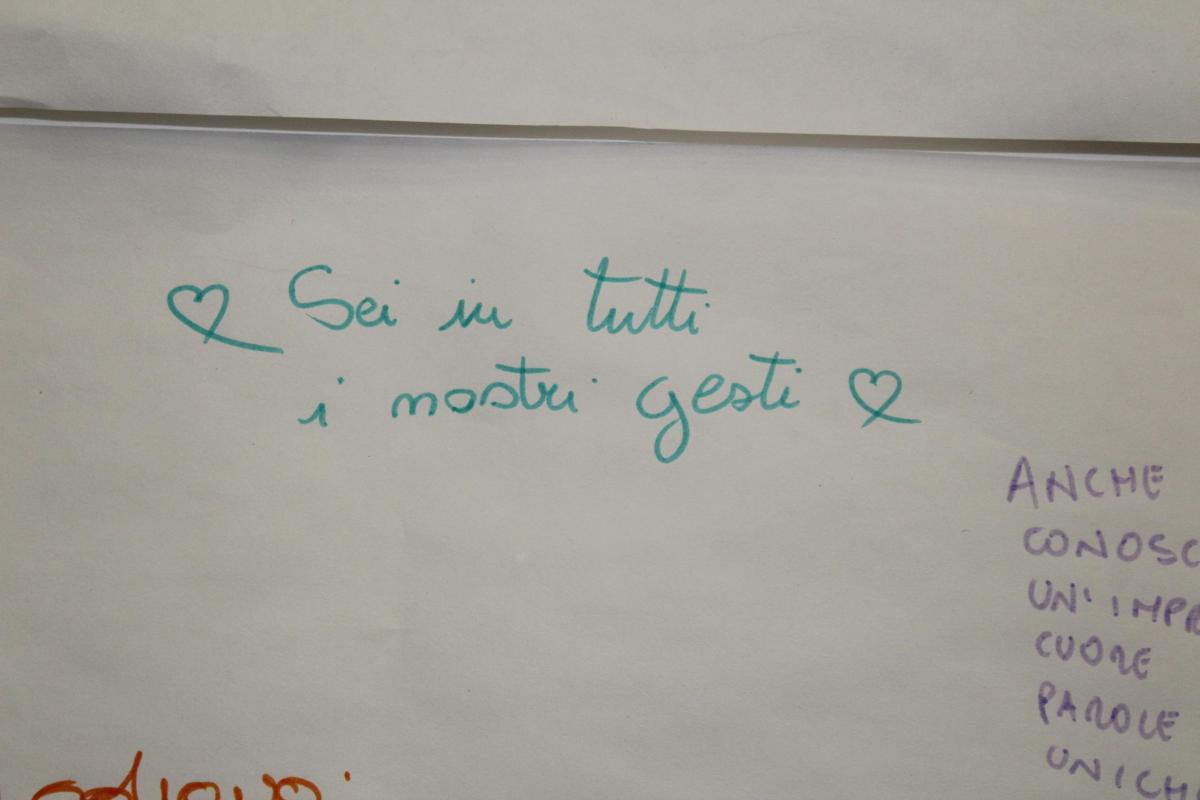 Sei in tutti
i nostri gesti
ANCHE
CONOSC
UN'IMPR
CUORE
PAROLE
UNICH